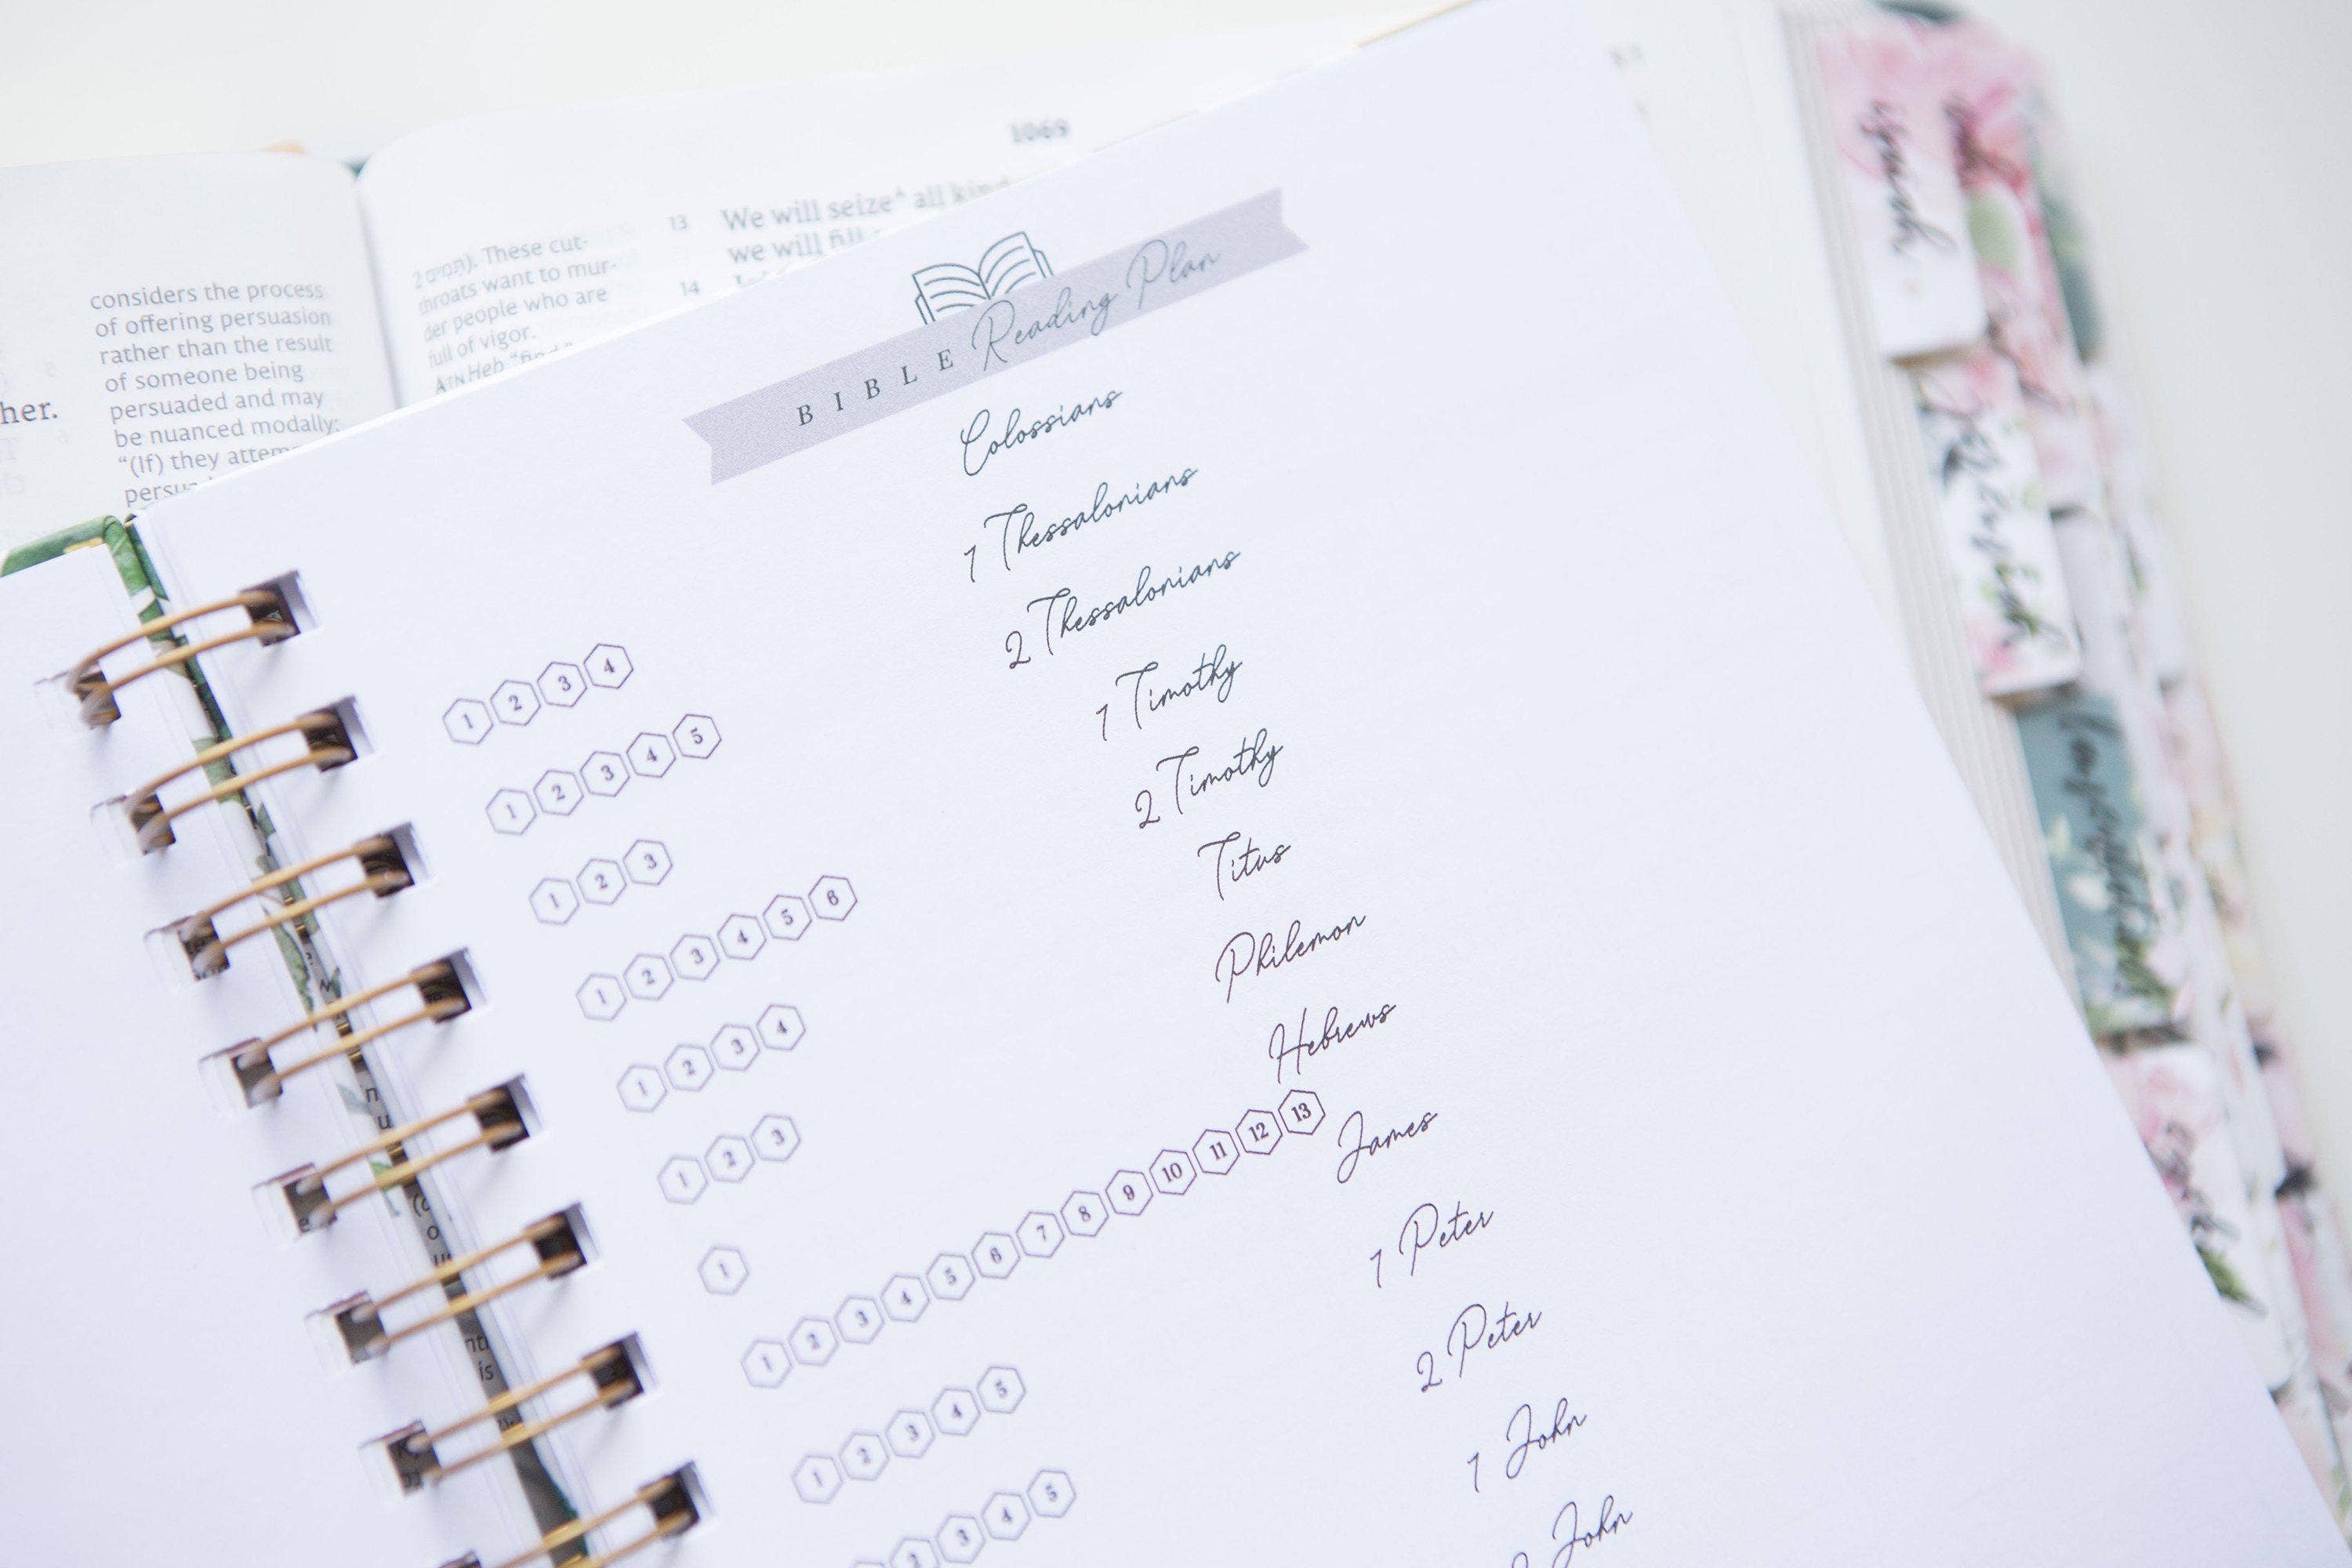 1069
13 We will seize^ all
we will fill
14
considers the process
of offering persuasion
rather than the result
of someone being
persuaded and may
be nuanced modally:
“(If) they
her.
These cut-
throats want to mur-
der people who are
full of vigor.
ATN Heb
BIBLE Reading Plan
Colossians
1 Thessalonians
2 Thessalonians
1 Timothy
2 Timothy
Titus
Philemon
Hebrews
James
1 Peter
2 Peter
1 John
John
1 2 3 4
1 2 3 4 5
1 2 3
1 2 3 4 5 6
1 2 3 4
1 2 3
1
1 2 3 4 5 6 7 8 9 10 11 12 13
1 2 3 4 5
2 3 4 5
Isaiah
Jeremiah
Lamentations